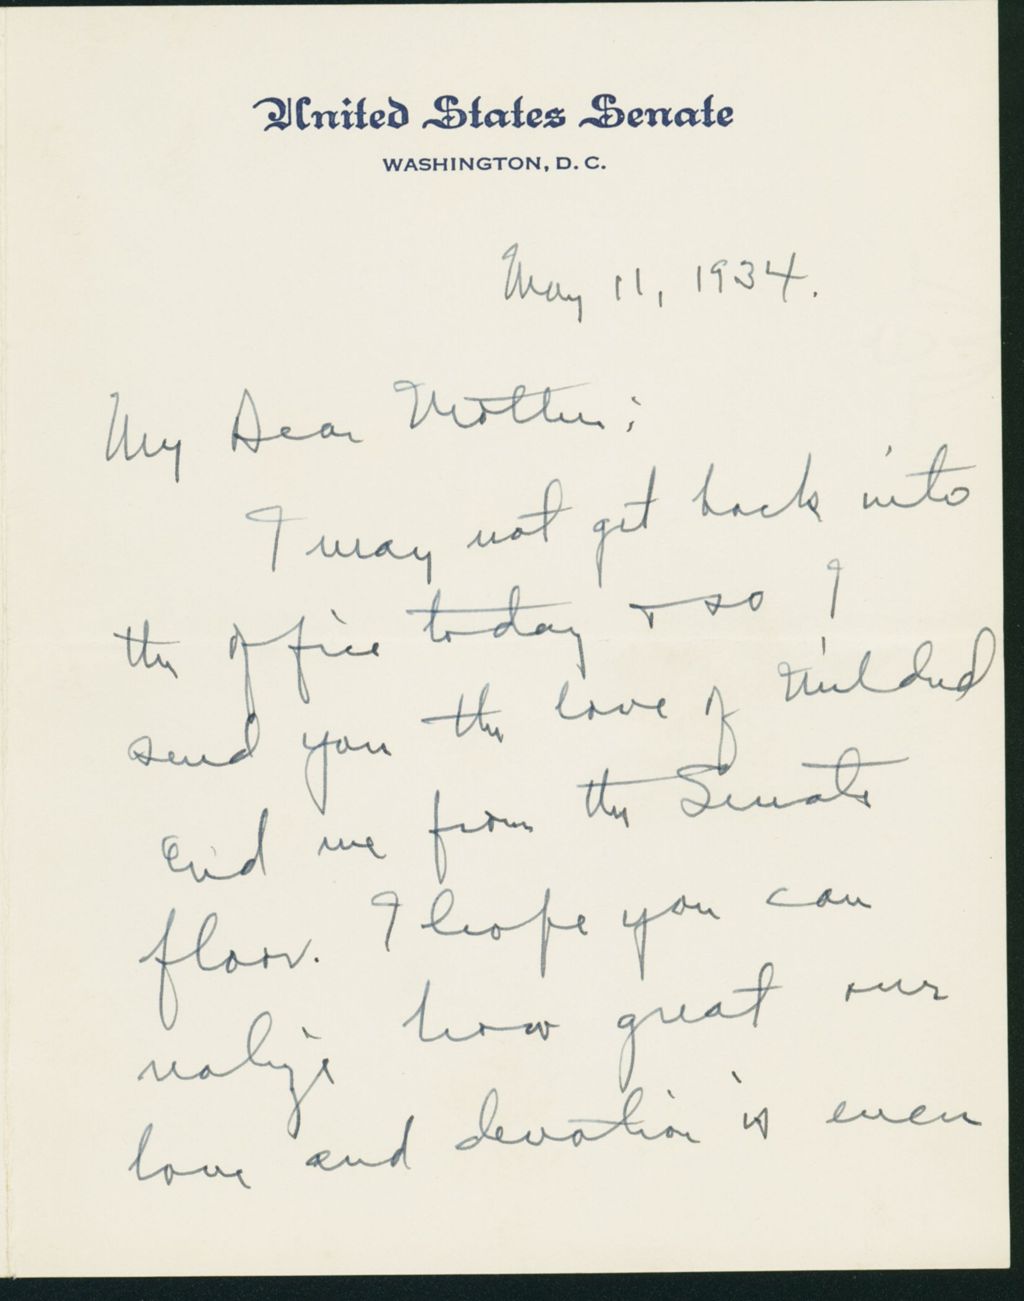 United States Senate
WASHINGTON, D. C.
May 11, 1934.
My Dear Mother:
I may not get back into
the office today & so I
send you the love of Mildred
and me from the Senate
floor. I hope you can
realize how great our
love and devotion is even